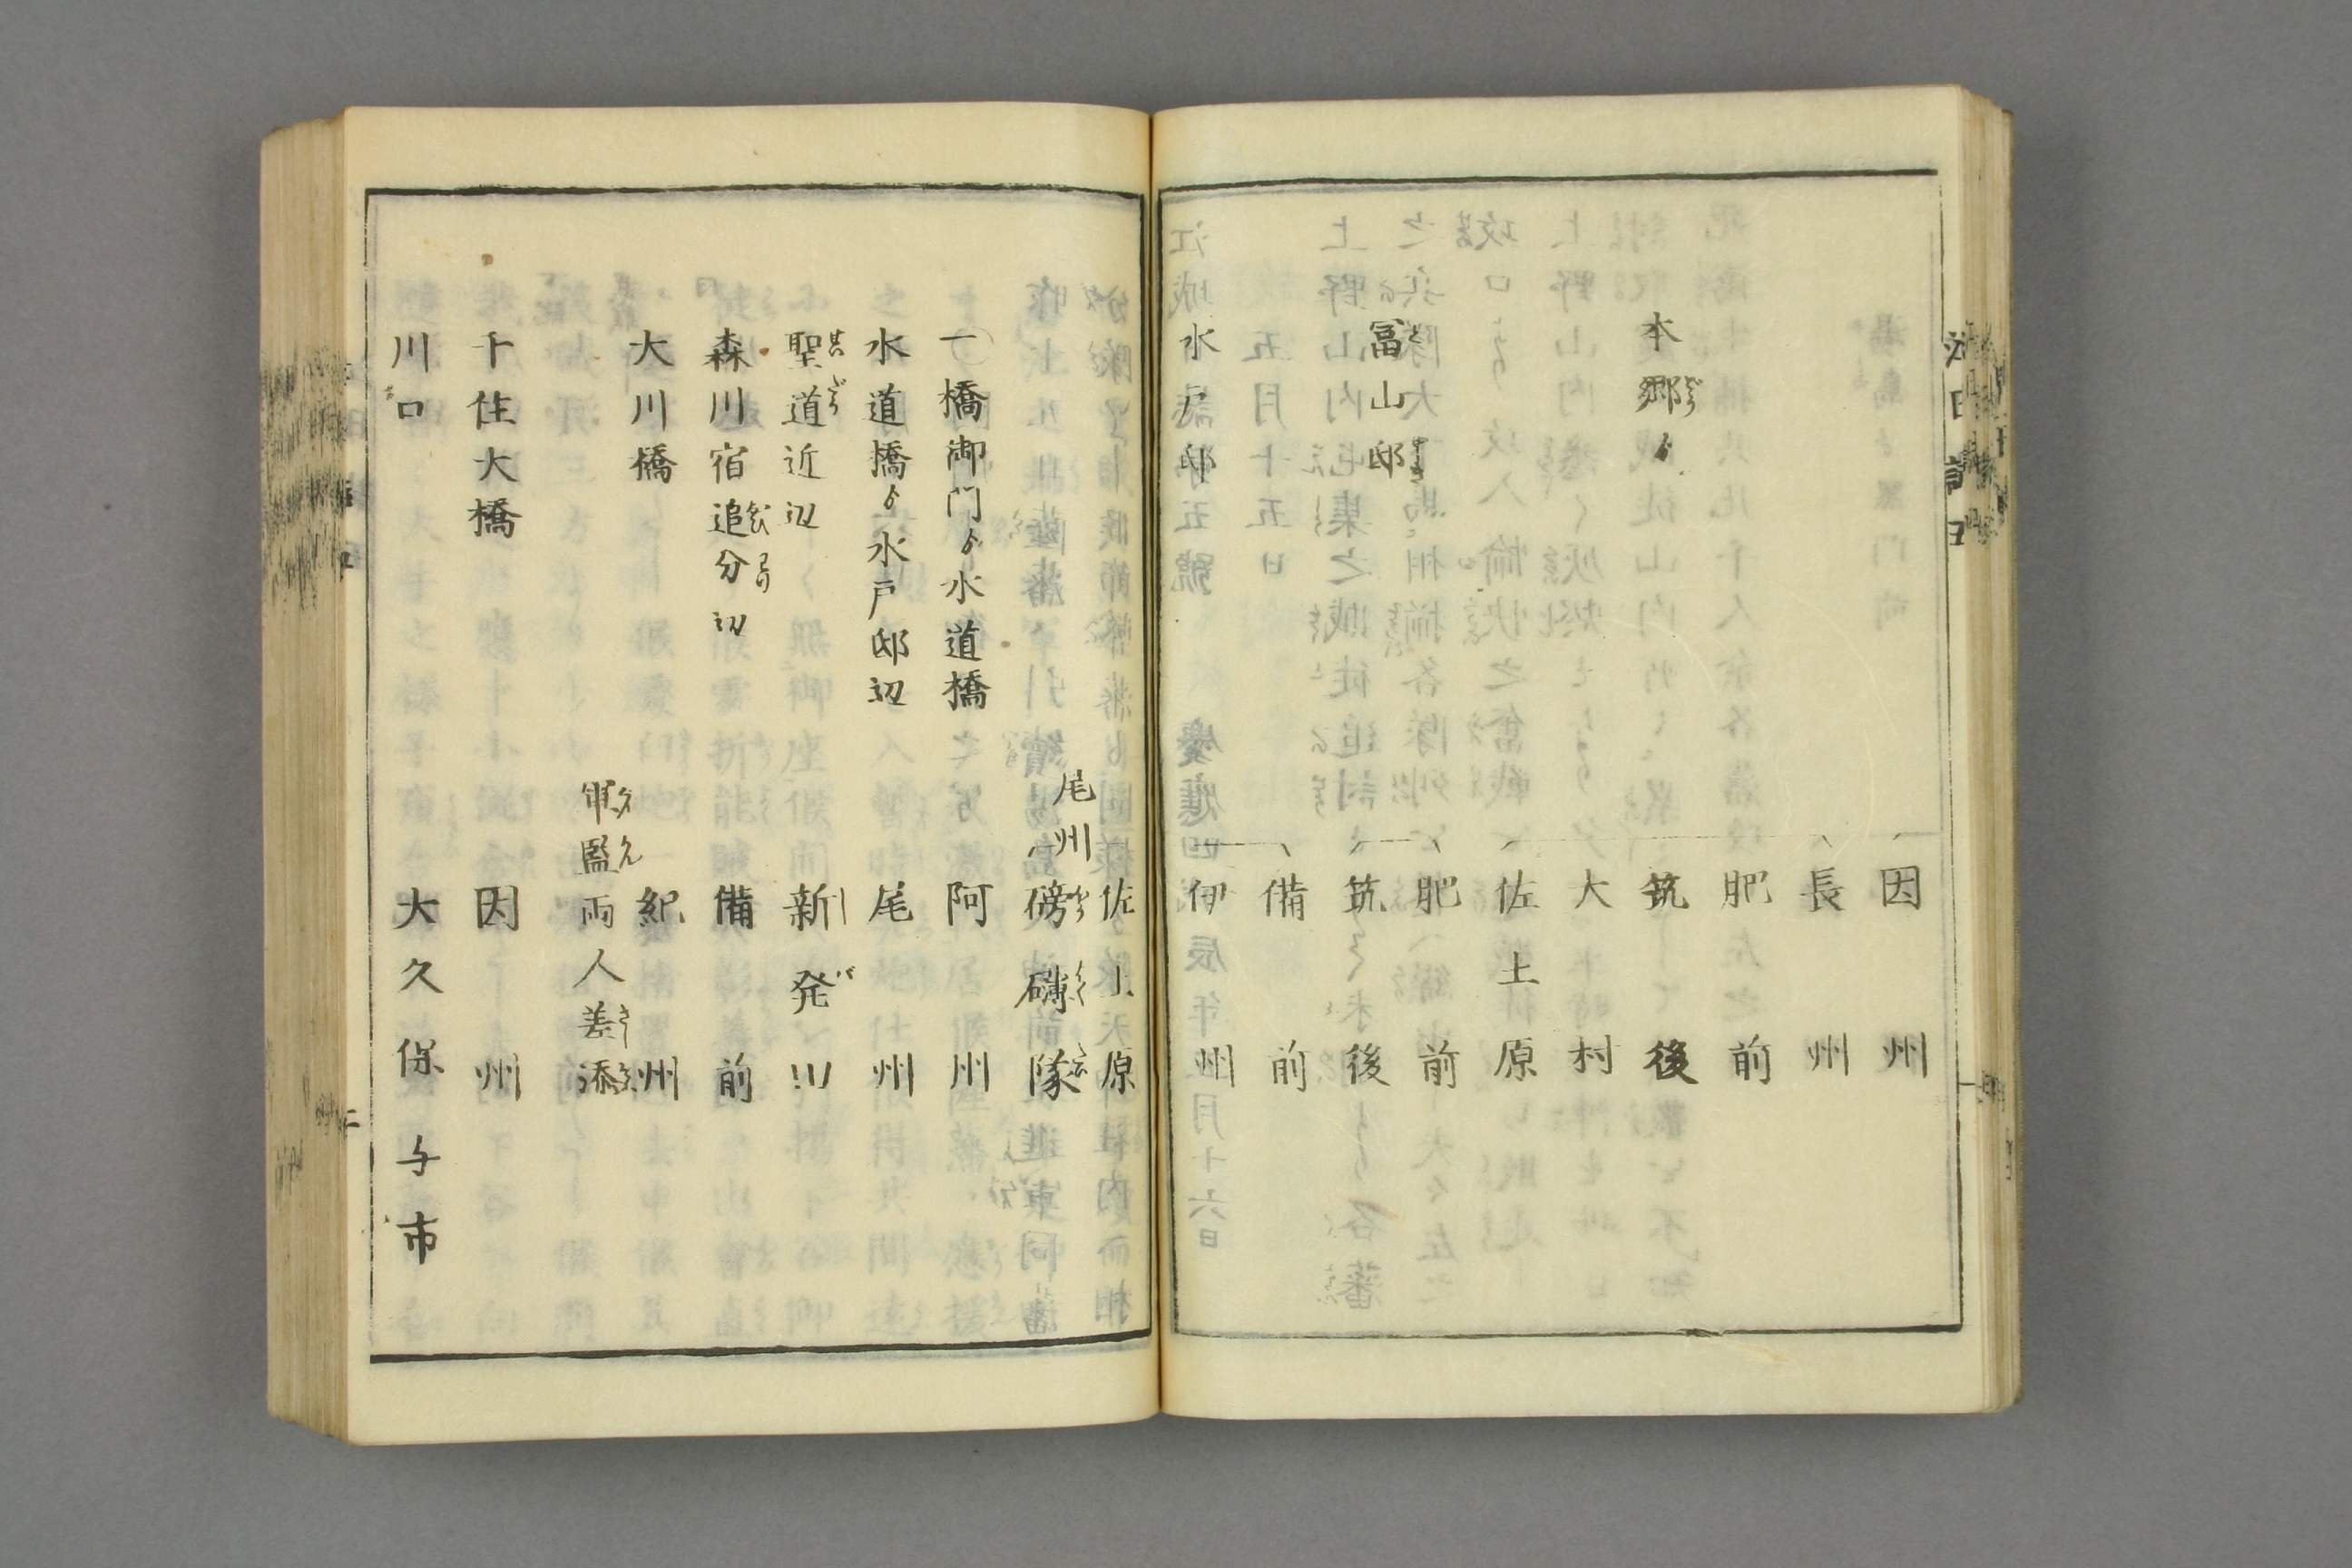 因州
長州
肥前
本郷ゟ 筑後
大村
佐土原
肥前
冨山邸 筑後
備前
水戸邸 伊州
佐土原
尾州 磅礴隊
一橋御門ゟ水道橋 阿州
水道橋ゟ水戸邸辺 尾州
聖道近辺 新発川
森川宿追分辺 備前
大川橋 紀州
軍監両人差添
千住大橋 因州
川口 大久保与市
二